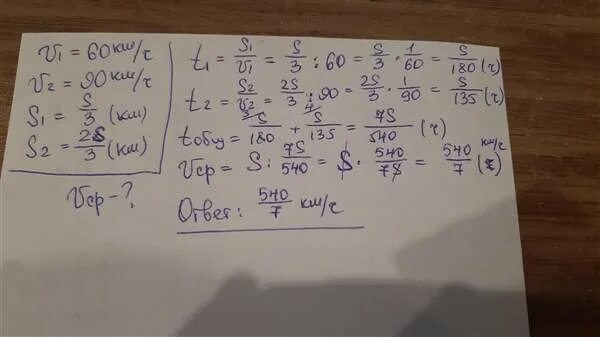 v₁ = 60 км/ч
v₂ = 90 км/ч
S₁ = S/3 (км)
S₂ = 2S/3 (км)
vср - ?
t₁ = S₁/v₁ = S/3 : 60 = S/3 · 1/60 = S/180 (ч)
t₂ = S₂/v₂ = 2S/3 : 90 = 2S/3 · 1/90 = S/135 (ч)
tобщ = ³S/180 + ⁴S/135 = 7S/540 (ч)
vср = S : 7S/540 = S · 540/7S = 540/7 (км/ч)
Ответ: 540/7 км/ч